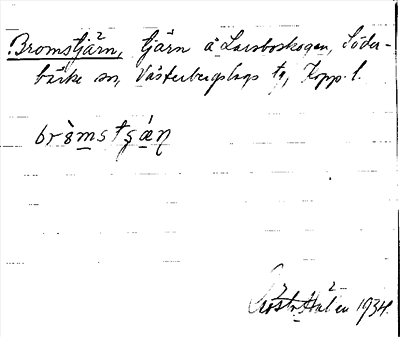 Bromstjärn, tjärn å Larsboskogen, Söder-
bärke sn, Västerbergslags tg, Kopp. l.
brò̤mstʂǽṇ
1934.